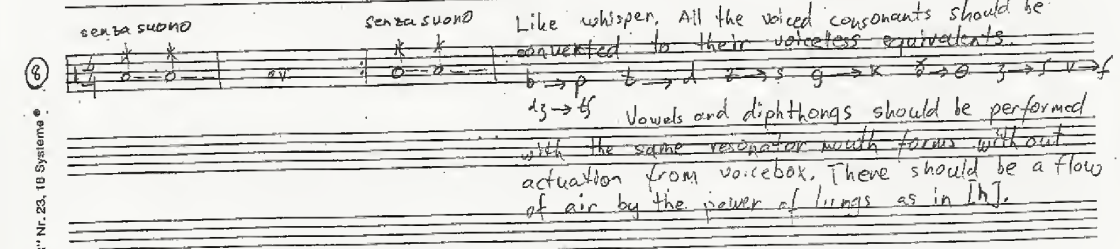 senza suono
senza suono
Like whisper. All the voiced consonants should be
converted to their voiceless equivalents.
8
b → p t → d z → s g → k ð → θ ʒ → ʃ v → f
dʒ → tʃ
Vowels and diphthongs should be performed
with the same resonator mouth forms without
actuation from voicebox. There should be a flow
of air by the power of lungs as in [h].
" Nr. 23, 18 Systeme